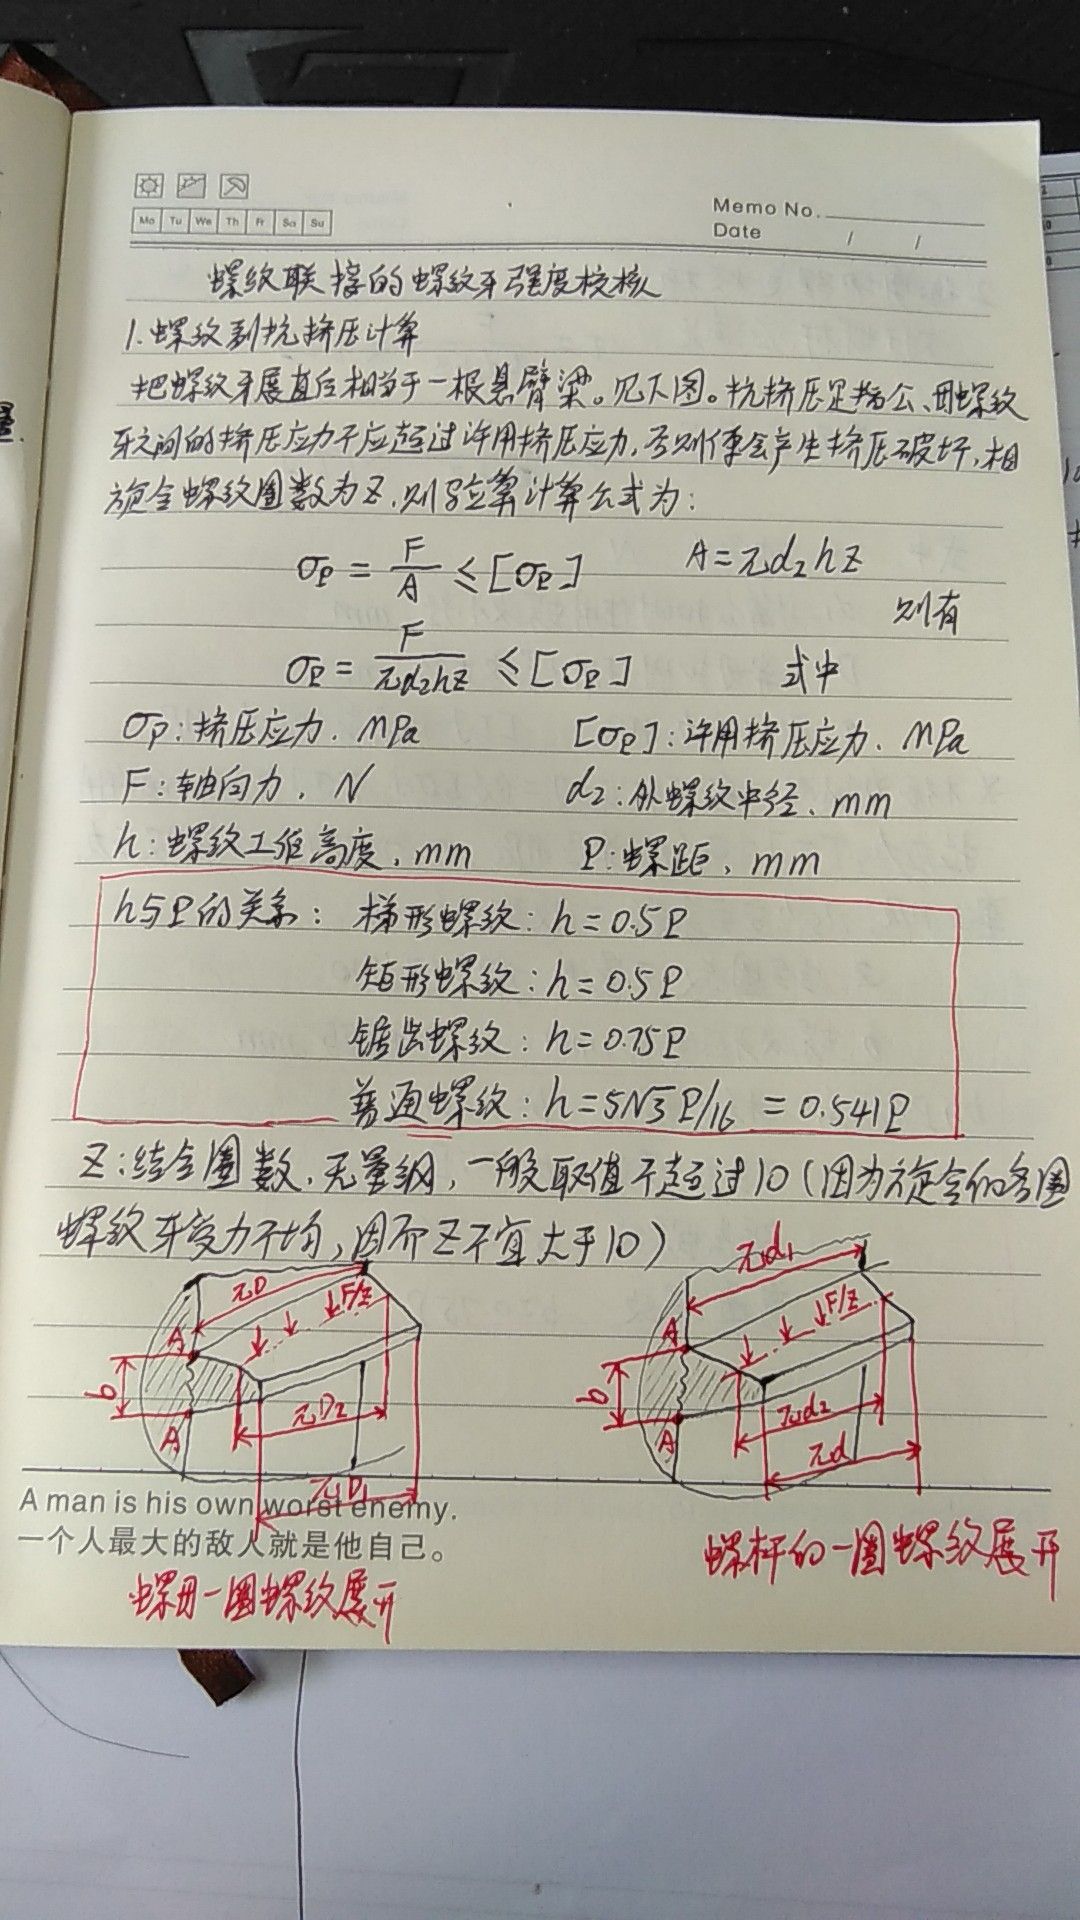 Mo Tu We Th Fr Sa Su
Memo No.
Date / /
螺纹联接的螺纹牙强度校核
1.螺纹副抗挤压计算
把螺纹牙展直后相当于一根悬臂梁。见下图。抗挤压是指公、母螺纹
牙之间的挤压应力不应超过许用挤压应力,否则便会产生挤压破坏,相
旋合螺纹圈数为Z,则验算计算公式为:
σP = F/A ≤ [σP] A=πd2hz
则有
σP = F/πd2hz ≤ [σP] 式中
σP:挤压应力. MPa [σP]:许用挤压应力. MPa
F:轴向力, N d2:外螺纹中径, mm
h:螺纹工作高度, mm P:螺距, mm
h与P的关系: 梯形螺纹: h=0.5P
矩形螺纹: h=0.5P
锯齿螺纹: h=0.75P
普通螺纹: h=5√3P/16 = 0.541P
Z:结合圈数,无量纲,一般取值不超过10(因为旋合的各圈
螺纹牙受力不均,因而Z不宜大于10)
πD F/Z A b A πD2 πD1
πd1 F/Z A b A πd2 πd
A man is his own worst enemy.
一个人最大的敌人就是他自己。
螺母一圈螺纹展开
螺杆的一圈螺纹展开